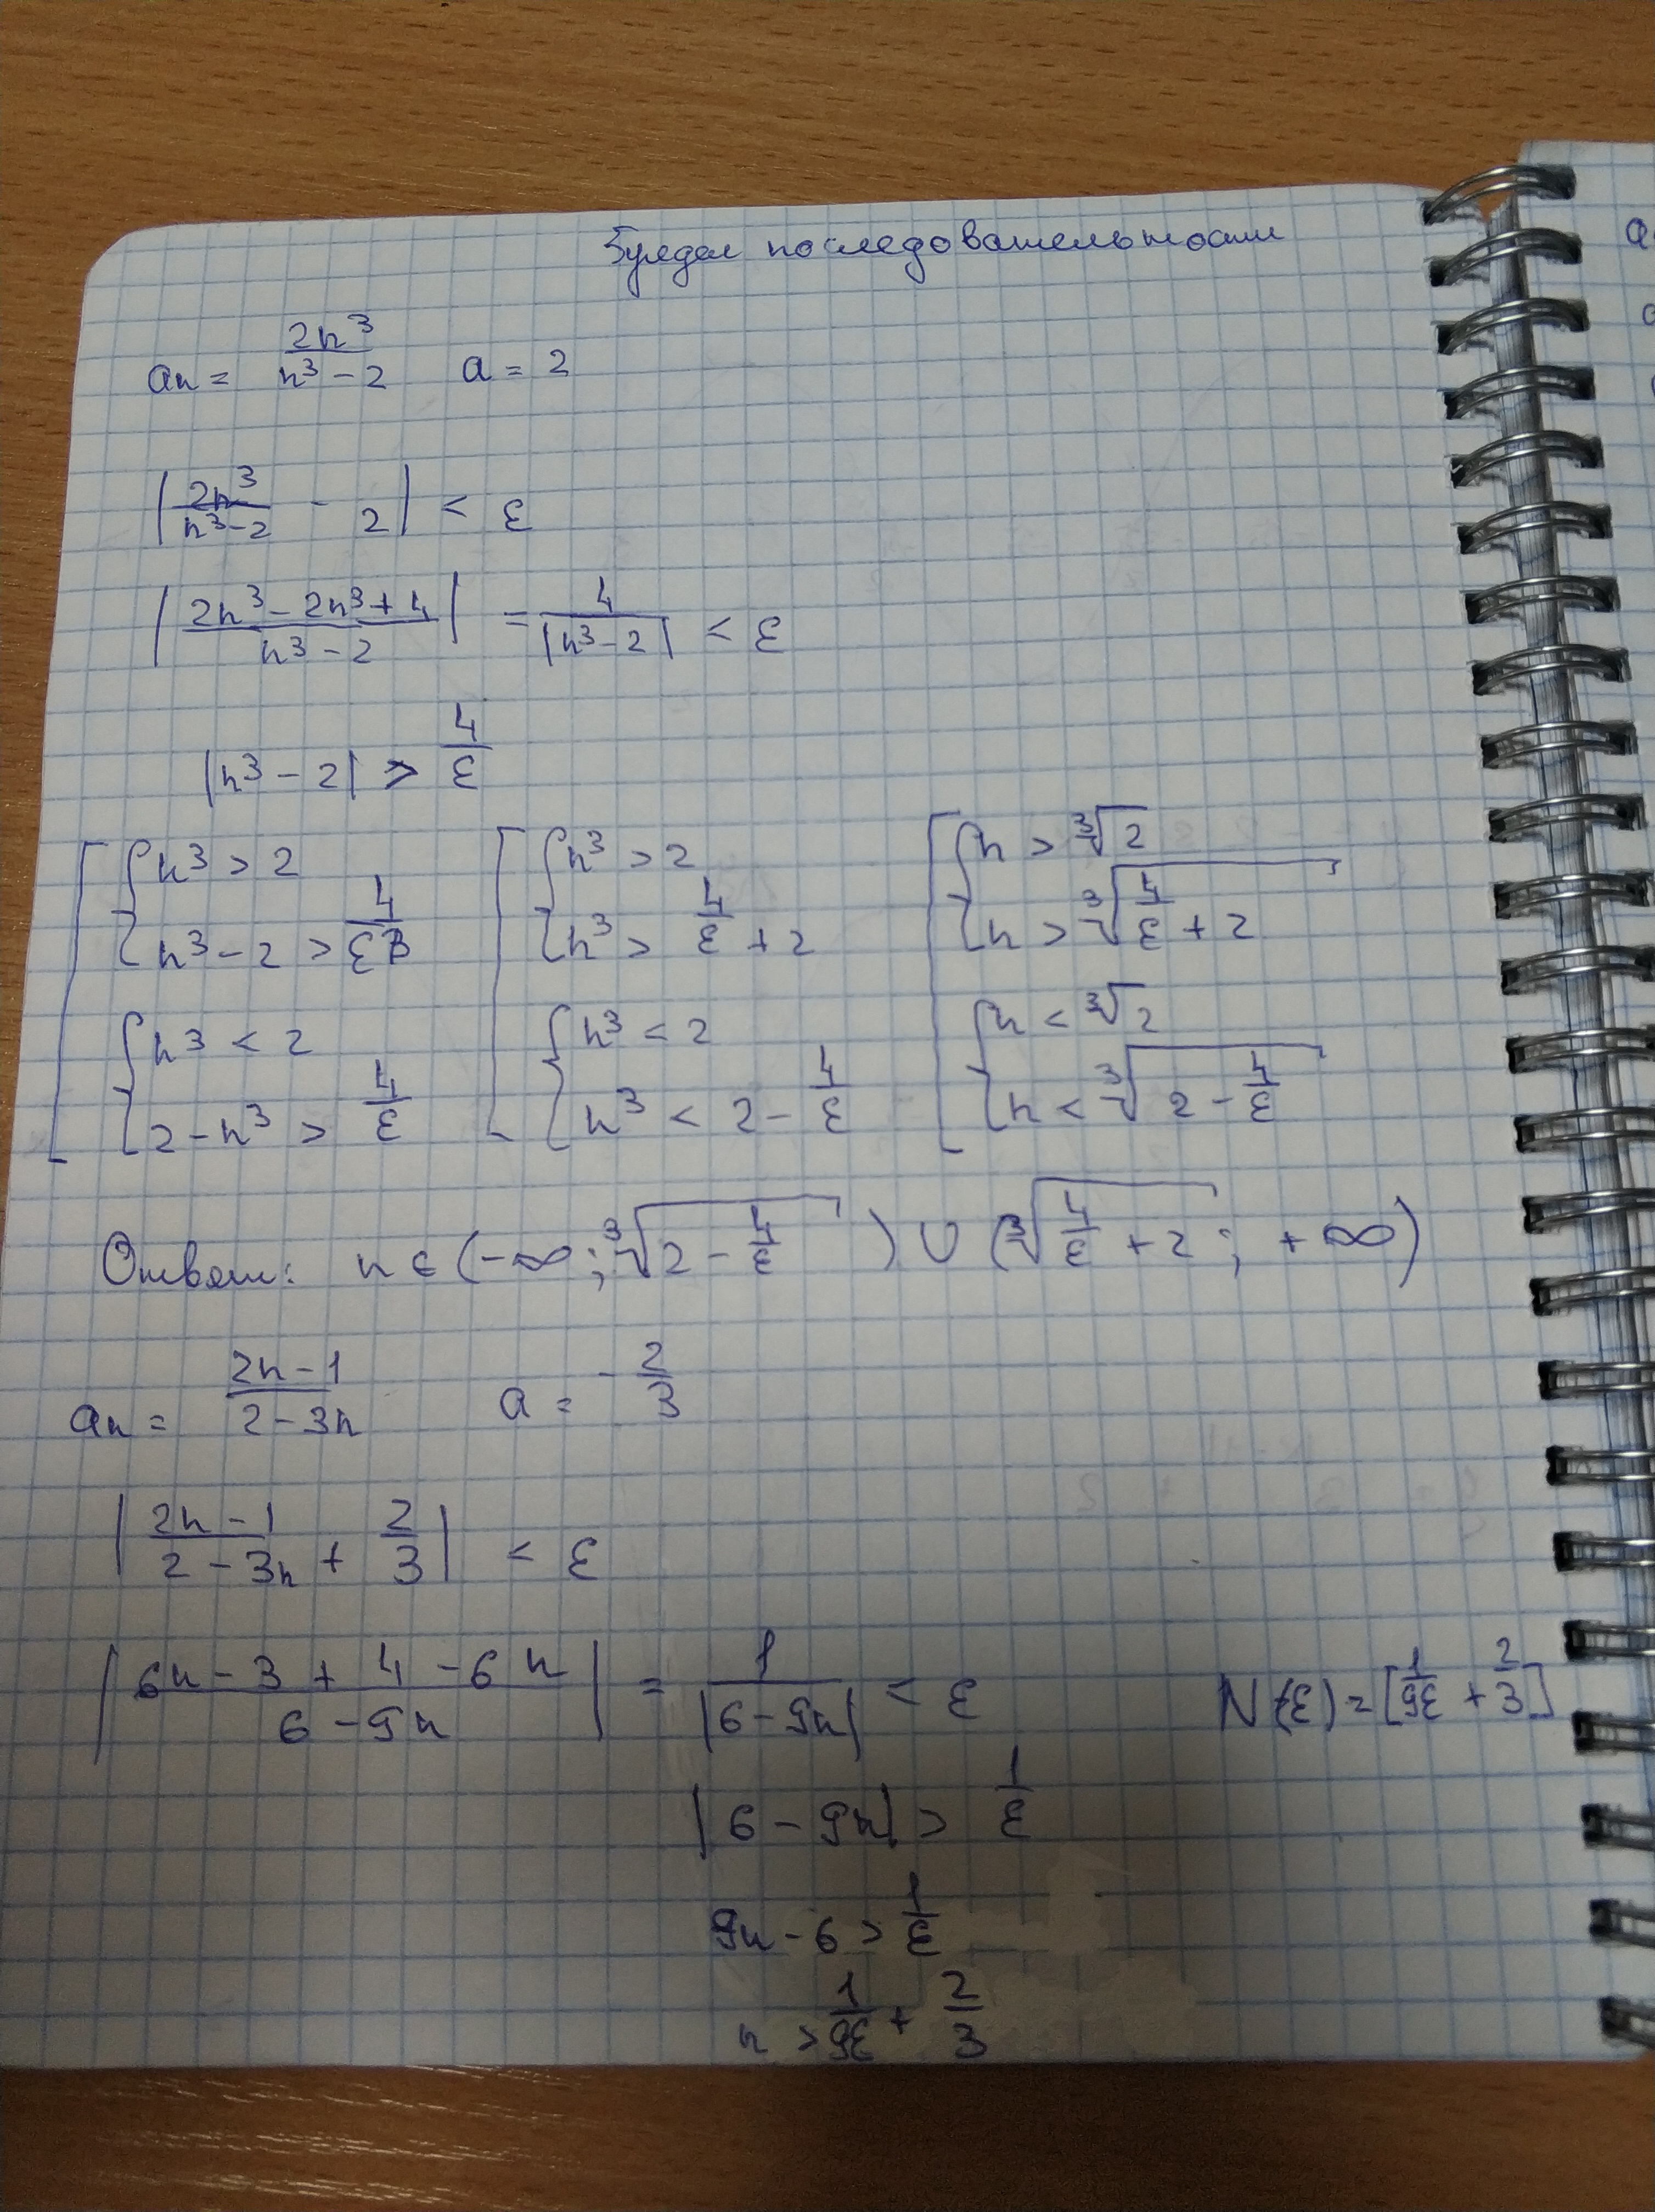 Предел последовательности
an = 2n³/(n³ - 2) a = 2
|2n³/(n³ - 2) - 2| < ε
|(2n³ - 2n³ + 4)/(n³ - 2)| = 4/|n³ - 2| < ε
|n³ - 2| > 4/ε
[ { n³ > 2 [ { n³ > 2 [ { n > ∛2
n³ - 2 > 4/ε n³ > 4/ε + 2 n > ∛(4/ε + 2)
{ n³ < 2 { n³ < 2 { n < ∛2
2 - n³ > 4/ε n³ < 2 - 4/ε n < ∛(2 - 4/ε)
Ответ: n ∈ (-∞; ∛(2 - 4/ε)) ∪ (∛(4/ε + 2); +∞)
an = (2n - 1)/(2 - 3n) a = -2/3
|(2n - 1)/(2 - 3n) + 2/3| < ε
|(6n - 3 + 4 - 6n)/(6 - 9n)| = 1/|6 - 9n| < ε N(ε) = [1/9ε + 2/3]
|6 - 9n| > 1/ε
9n - 6 > 1/ε
n > 1/9ε + 2/3